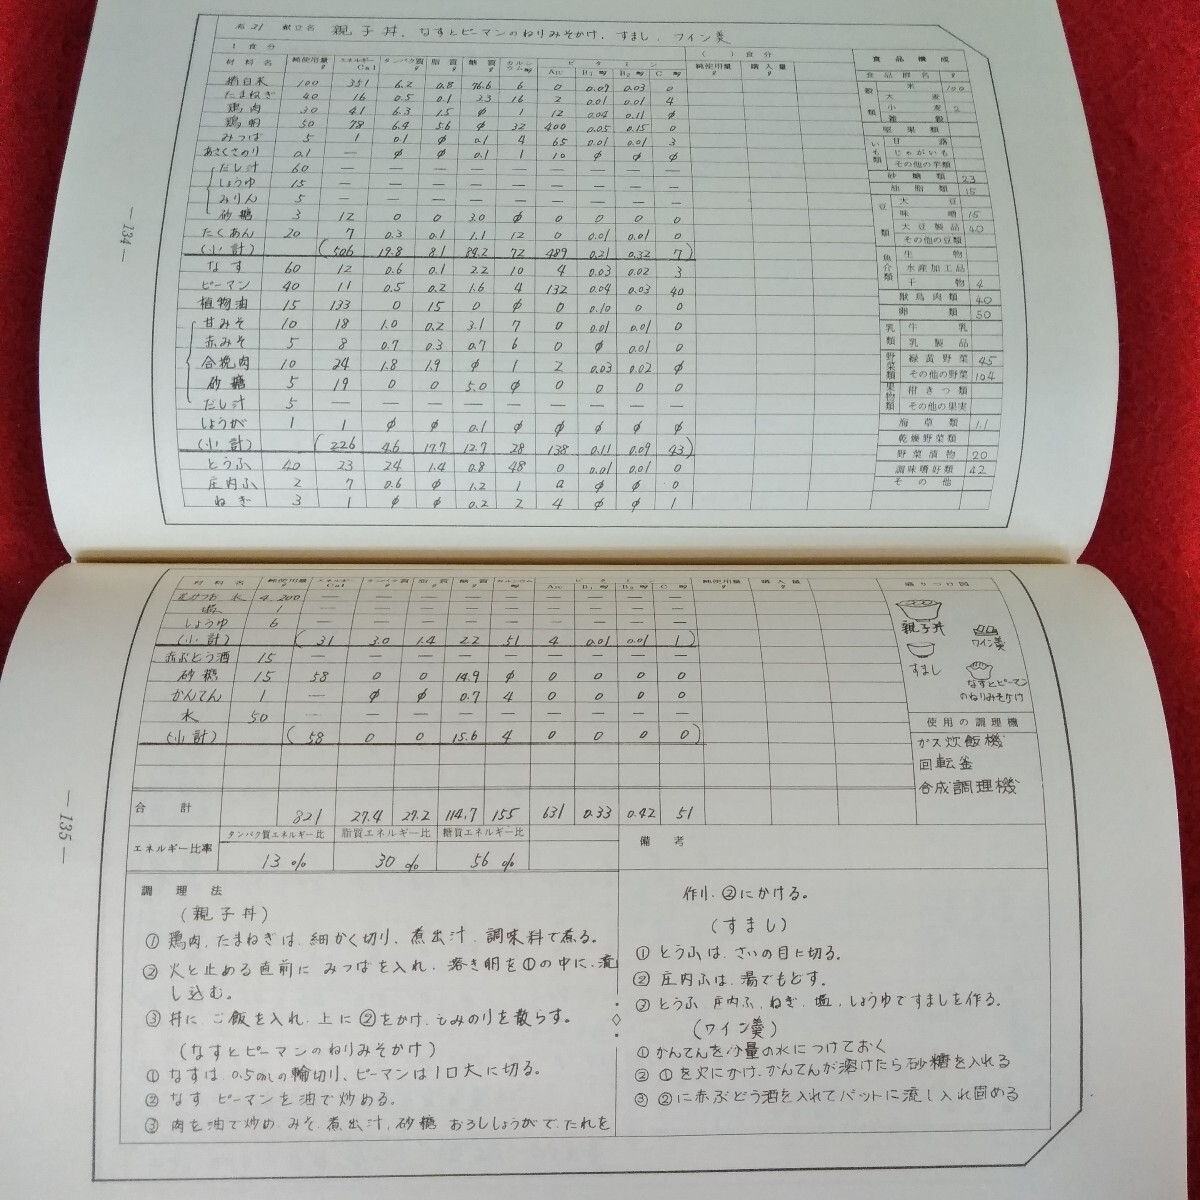 No.21 献立名 親子丼、なすとピーマンのねりみそかけ、すまし、ワイン羹
1食分 ( )食分 食品構成
材料名 純使用量g エネルギーCal タンパク質g 脂質g 糖質g カルシウムmg ビタミン AIU B1mg B2mg C mg 純使用量g 購入量g
精白米 100 351 6.2 0.8 76.6 6 0 0.09 0.03 0
たまねぎ 40 16 0.5 0.1 3.3 16 2 0.01 0.01 4
鶏肉 30 41 6.3 1.5 φ 1 12 0.04 0.11 φ
鶏卵 50 78 6.4 5.6 φ 32 400 0.05 0.15 0
みつば 5 1 0.1 φ 0.1 4 65 0.01 0.01 3
あさくさのり 0.1 — φ φ 0.1 1 10 φ φ φ
だし汁 60 — — — — — — — — —
しょうゆ 15 — — — — — — — — —
みりん 5 — — — — — — — — —
砂糖 3 12 0 0 3.0 φ 0 0 0 0
たくあん 20 7 0.3 0.1 1.1 12 0 0.01 0.01 0
(小計) (506 19.8 8.1 84.2 72 489 0.21 0.32 7)
なす 60 12 0.6 0.1 2.2 10 4 0.03 0.02 3
ピーマン 40 11 0.5 0.2 1.6 4 132 0.04 0.03 40
植物油 15 133 0 15 0 φ 0 0.10 0 0
甘みそ 10 18 1.0 0.2 3.1 7 0 0.01 0.01 0
赤みそ 5 8 0.7 0.3 0.7 6 0 φ 0.01 0
合挽肉 10 24 1.8 1.9 φ 1 2 0.03 0.02 φ
砂糖 5 19 0 0 5.0 φ 0 0 0 0
だし汁 5 — — — — — — — — —
しょうが 1 1 φ φ 0.1 φ φ φ φ φ
(小計) (226 4.6 17.7 12.7 28 138 0.11 0.09 43)
とうふ 40 23 2.4 1.4 0.8 48 0 0.01 0.01 0
庄内ふ 2 7 0.6 φ 1.2 1 0 φ φ 0
ねぎ 3 1 φ φ 0.2 2 4 φ φ 1
食品群名 g
穀類 米 100
大麦
小麦 2
雑穀
堅果類
いも類 甘藷
じゃがいも
その他の芋類
砂糖類 23
油脂類 15
豆類 大豆
味噌 15
大豆製品 40
その他の豆類
魚介類 生物
水産加工品
干物 4
獣鳥肉類 40
卵類 50
乳類 牛乳
乳製品
野菜類 緑黄野菜 45
その他の野菜 104
果物類 柑きつ類
その他の果実
海草類 1.1
乾燥野菜類
野菜漬物 20
調味嗜好類 42
その他
—134—
材料名 純使用量g エネルギーCal タンパク質g 脂質g 糖質g カルシウムmg ビタミン AIU B1mg B2mg C mg 純使用量g 購入量g
水 4.200 — — — — — — — — —
塩 1 — — — — — — — — —
しょうゆ 6 — — — — — — — — —
(小計) (31 3.0 1.4 2.2 51 4 0.01 0.01 1)
赤ぶどう酒 15 — — — — — — — — —
砂糖 15 58 0 0 14.9 φ 0 0 0 0
かんてん 1 — φ φ 0.7 4 0 0 0 0
水 50 — — — — — — — — —
(小計) (58 0 0 15.6 4 0 0 0 0)
合計 821 27.4 27.2 114.7 155 631 0.33 0.42 51
エネルギー比率 タンパク質エネルギー比 脂質エネルギー比 糖質エネルギー比
13% 30% 56%
備考
盛りつけ図
親子丼
ワイン羹
すまし
なすとピーマン
のねりみそかけ
使用の調理機
ガス炊飯機
回転釜
合成調理機
—135—
調理法
(親子丼)
① 鶏肉、たまねぎは、細かく切り、煮出汁、調味料で煮る。
② 火を止める直前に みつばを入れ、溶き卵を①の中に、流
し込む。
③ 丼に、ご飯を入れ、上に②をかけ、もみのりを散らす。
(なすとピーマンのねりみそかけ)
① なすは、0.5cmの輪切り、ピーマンは1口大に切る。
② なす ピーマンを油で炒める。
③ 肉を油で炒め、みそ、煮出汁、砂糖 おろししょうがで、たれを
作り、②にかける。
(すまし)
① とうふは、さいの目に切る。
② 庄内ふは、湯でもどす。
③ とうふ、庄内ふ、ねぎ、塩、しょうゆですましを作る。
(ワイン羹)
① かんてんを少量の水につけておく
② ①を火にかけ、かんてんが溶けたら砂糖を入れる
③ ②に赤ぶどう酒を入れてバットに流し入れ固める